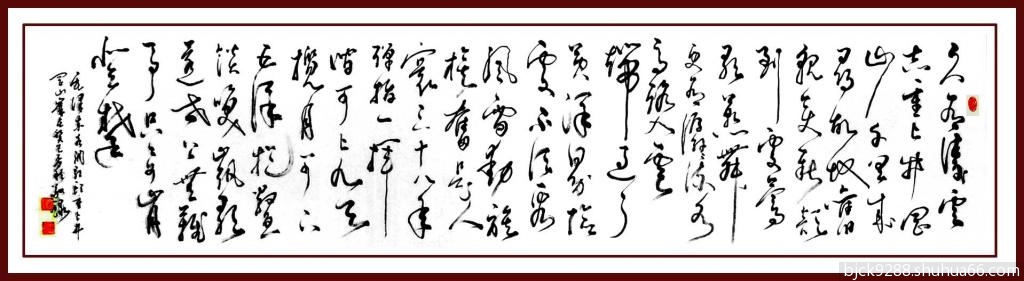 久有凌云
志重上井冈
山千里来
寻故地旧
貌变新颜
到处莺
歌燕舞
更有潺潺流水
高路入云
端过了
黄洋界险
处不须看
风雷动旌
旗奋是人
寰三十八年
弹指一挥
间可上九天
揽月可下
五洋捉鳖
谈笑凯歌
还世上无难
事只要肯
登攀
毛泽东水调歌头重上井
冈山
bjck9288.shuhua66.com